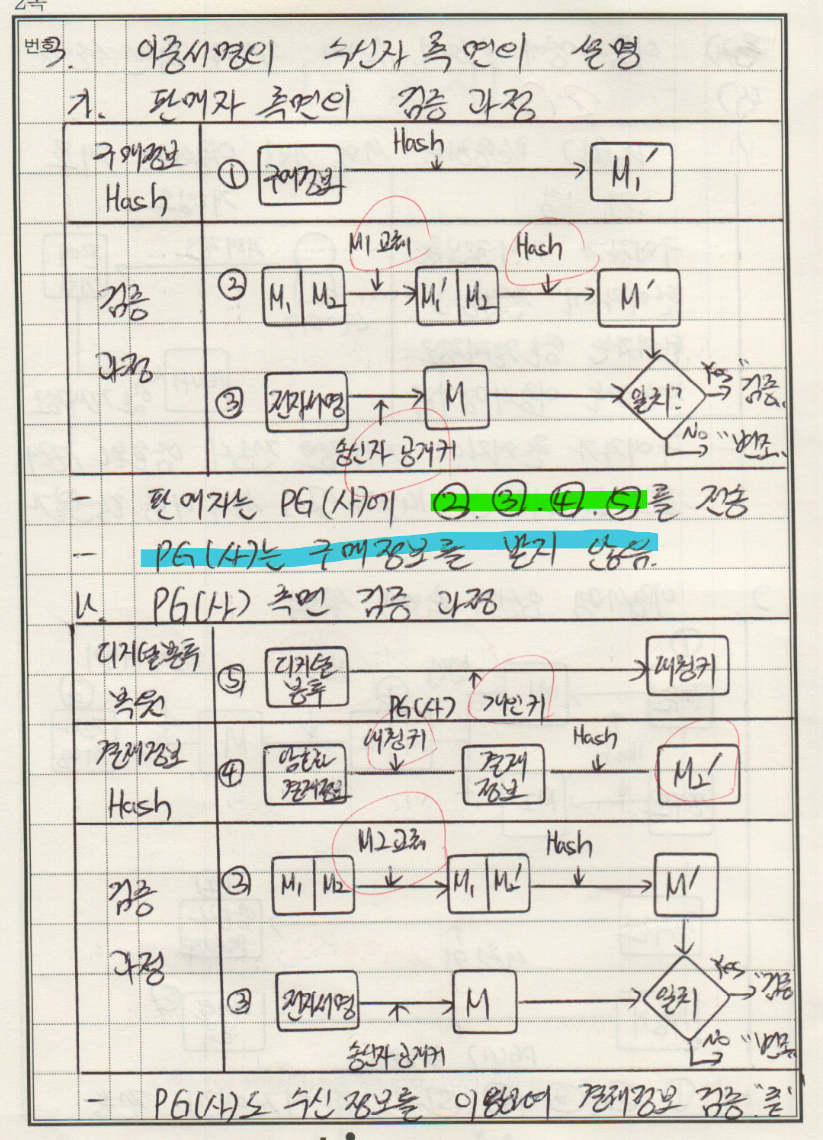 2쪽
번호
3. 이중서명의 수신자 측면의 설명
가. 판매자 측면의 검증 과정
구매정보 Hash
① 구매정보 Hash M₁′
검증 과정
② M₁ M₂ M1교체 M₁′ M₂ Hash M′
③ 전자서명 송신자 공개키 M 일치? Yes "검증" No "변조"
- 판매자는 PG(사)에 ②.③.④.⑤를 전송
- PG(사)는 구매정보를 받지 않음.
나. PG(사) 측면 검증 과정
디지털봉투 복원
⑤ 디지털봉투 PG(사) 개인키 대칭키
결제정보 Hash
④ 암호화 결제정보 대칭키 결제정보 Hash M₂′
검증 과정
② M₁ M₂ M2교체 M₁ M₂′ Hash M′
③ 전자서명 송신자 공개키 M 일치 Yes "검증 No "변조
- PG(사)도 수신 정보를 이용하여 결제정보 검증 "끝"